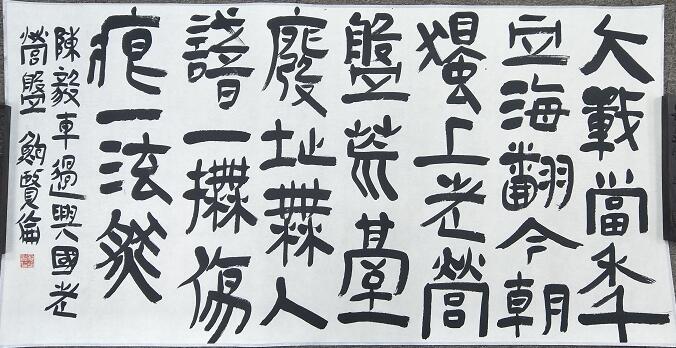 大戰當年
血海翻今朝
獨上老營
盤荒臺
廢址無人
諳一撫傷
痕一泫然
陳毅車過興國老
營盤 鮑賢倫